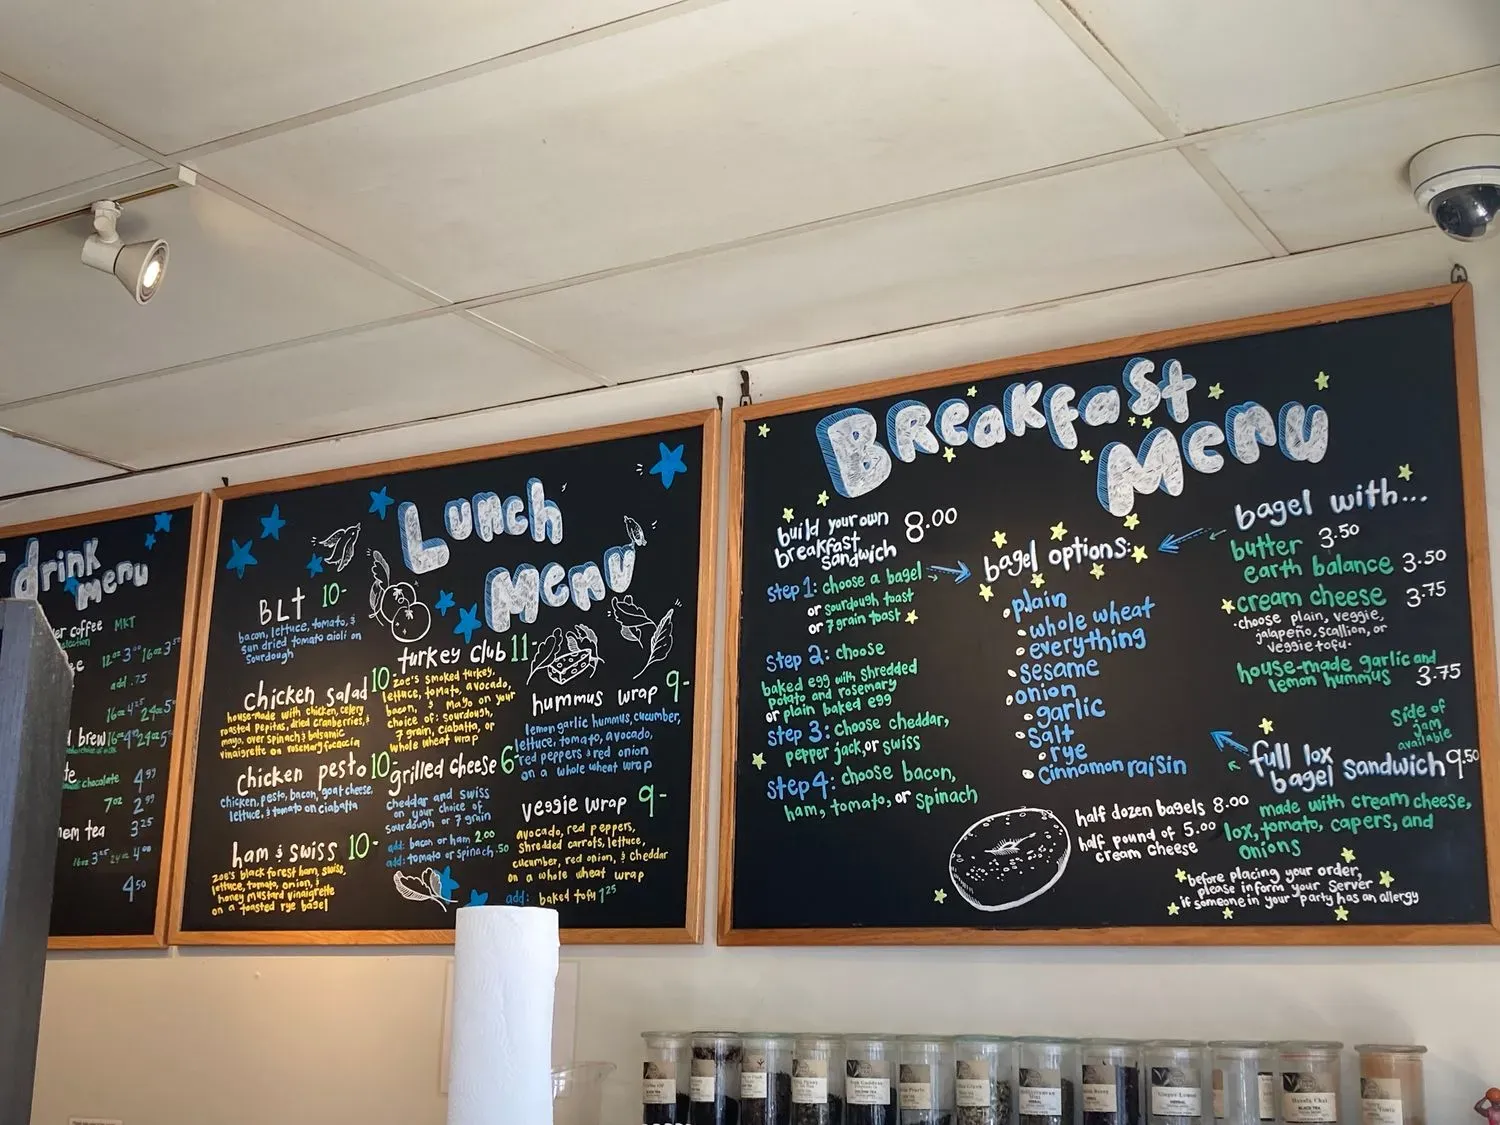 drink
menu
coffee MKT
12oz 3.00 16oz 3.50
add .75
16oz 4.25 24oz 5
brew 16oz 4.00 24oz 5
chocolate 4.99
7oz 2.99
tea 3.25
16oz 3.25 24oz 4.00
4.50
Lunch
Menu
BLt 10-
bacon, lettuce, tomato, &
sun dried tomato aioli on
sourdough
chicken salad 10-
house-made with chicken, celery
roasted pepitas, dried cranberries, &
mayo, over spinach & balsamic
vinaigrette on rosemary focaccia
chicken pesto 10-
chicken, pesto, bacon, goat cheese,
lettuce, & tomato on ciabatta
ham & swiss 10-
zoe's black forest ham, swiss,
lettuce, tomato, onion, &
honey mustard vinaigrette
on a toasted rye bagel
turkey club 11-
zoe's smoked turkey,
lettuce, tomato, avocado,
bacon, & mayo on your
choice of: sourdough,
7 grain, ciabatta, or
whole wheat wrap
grilled cheese 6-
cheddar and swiss
on your choice of
sourdough or 7 grain
add: bacon or ham 2.00
add: tomato or spinach .50
hummus wrap 9-
lemon garlic hummus, cucumber,
lettuce, tomato, avocado,
red peppers & red onion
on a whole wheat wrap
veggie wrap 9-
avocado, red peppers,
shredded carrots, lettuce,
cucumber, red onion, & cheddar
on a whole wheat wrap
add: baked tofu 1.25
Breakfast
Menu
build your own
breakfast
sandwich 8.00
Step 1: choose a bagel
or sourdough toast
or 7 grain toast
Step 2: choose
baked egg with shredded
potato and rosemary
or plain baked egg
Step 3: choose cheddar,
pepper jack, or swiss
Step 4: choose bacon,
ham, tomato, or spinach
bagel options:
plain
whole wheat
everything
sesame
onion
garlic
salt
rye
cinnamon raisin
half dozen bagels 8.00
half pound of 5.00
cream cheese
bagel with...
butter 3.50
earth balance 3.50
cream cheese 3.75
choose plain, veggie,
jalapeño, scallion, or
veggie tofu.
house-made garlic and
lemon hummus 3.75
side of
jam
available
full lox
bagel sandwich 9.50
made with cream cheese,
lox, tomato, capers, and
onions
before placing your order,
please inform your server
if someone in your party has an allergy